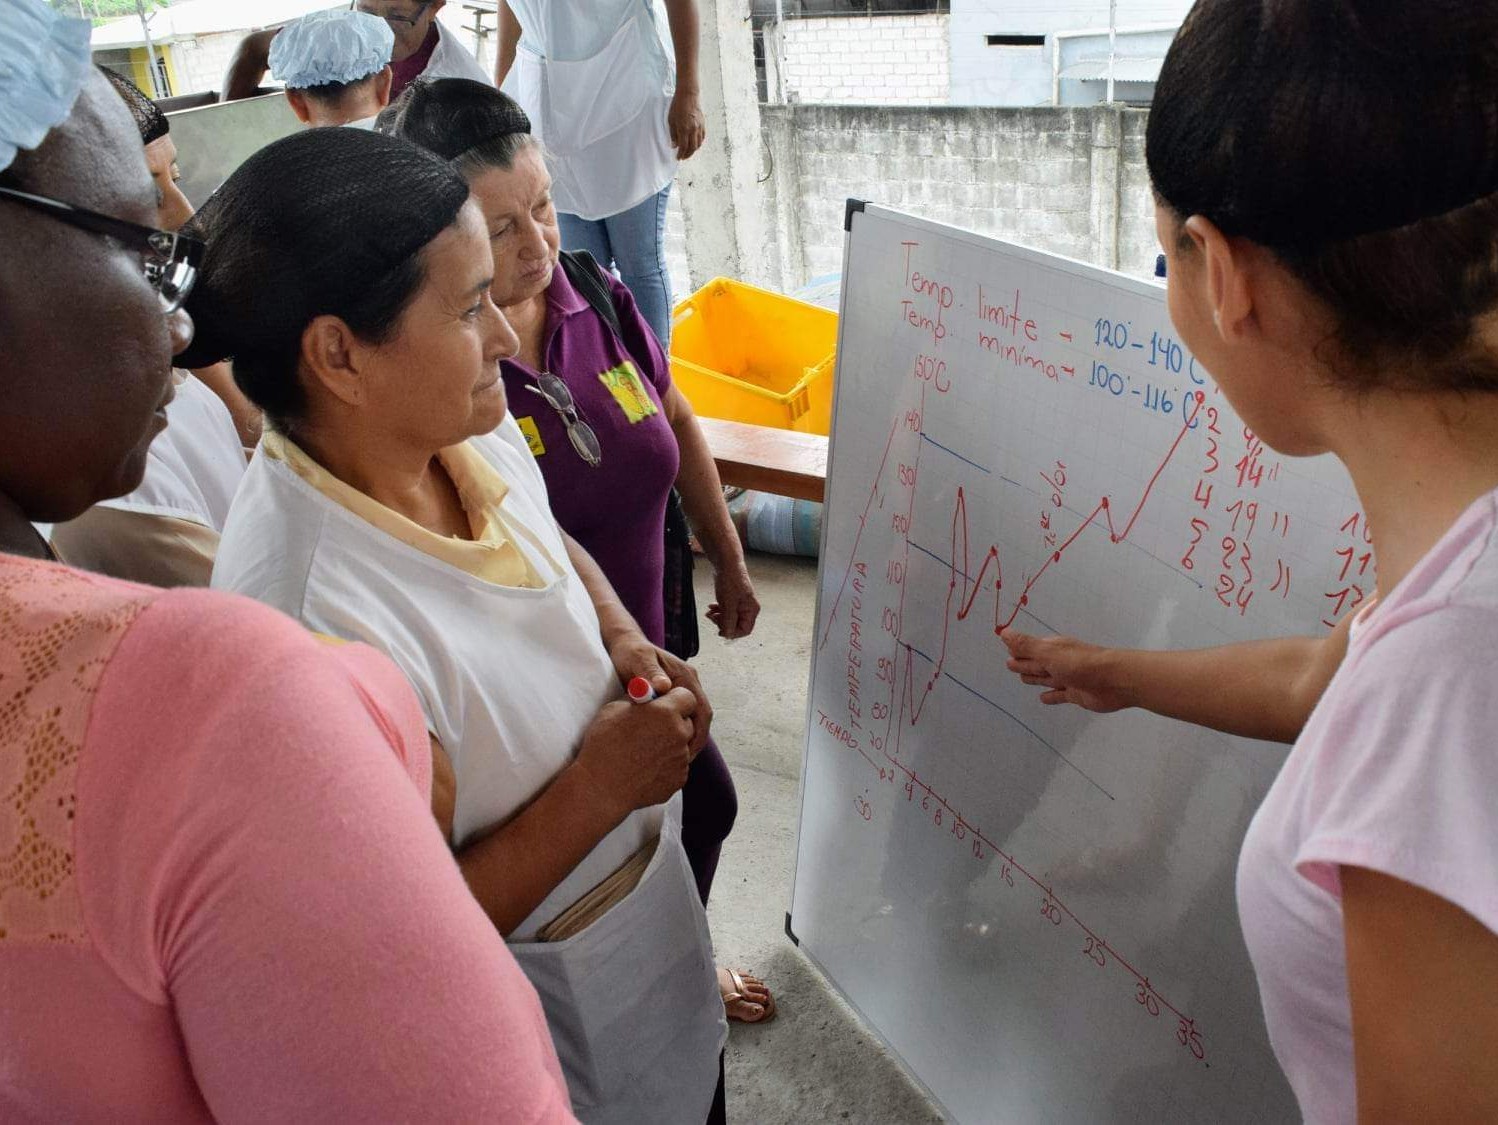 Temp. limite - 120°-140°C
Temp. minima - 100°-116°C
150°C
140
130
120
110
100
90
80
70
TEMPERATURA
TIEMPO
2 4 6 8 10 12 15 20 25 30 35
2
3 14 "
4 19 "
5 23 "
6 24